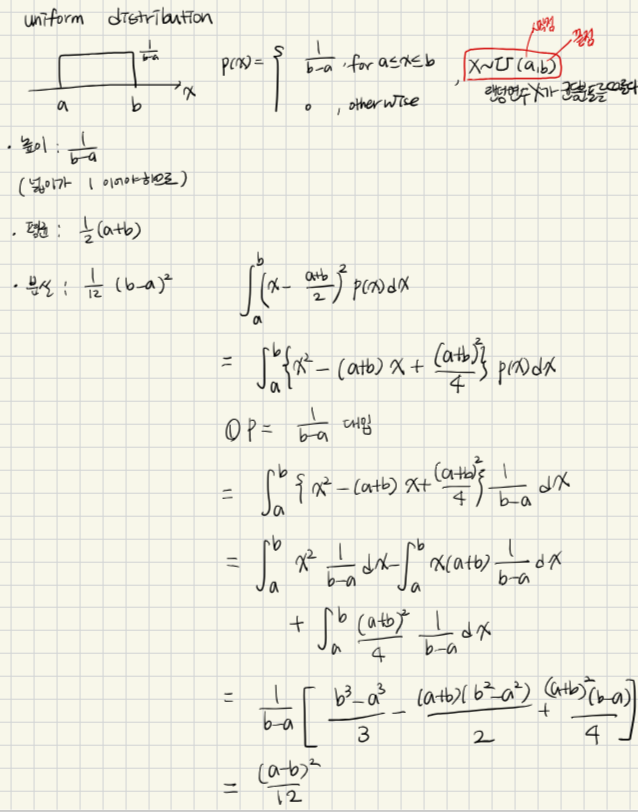 uniform distribution
1/(b-a)
a b x
p(x) = { 1/(b-a), for a≤x≤b
0, otherwise
, X~U(a,b)
시작점
끝점
랜덤변수 X가 균등분포를 따른다
· 높이 : 1/(b-a)
(넓이가 1 이어야하므로)
· 평균 : 1/2 (a+b)
· 분산 : 1/12 (b-a)²
∫_a^b (x - (a+b)/2)² p(x)dx
= ∫_a^b {x² - (a+b)x + (a+b)²/4} p(x)dx
① P = 1/(b-a) 대입
= ∫_a^b {x² - (a+b)x + (a+b)²/4} 1/(b-a) dx
= ∫_a^b x² 1/(b-a) dx - ∫_a^b x(a+b) 1/(b-a) dx
+ ∫_a^b (a+b)²/4 1/(b-a) dx
= 1/(b-a) [ (b³-a³)/3 - (a+b)(b²-a²)/2 + (a+b)²(b-a)/4 ]
= (a-b)²/12